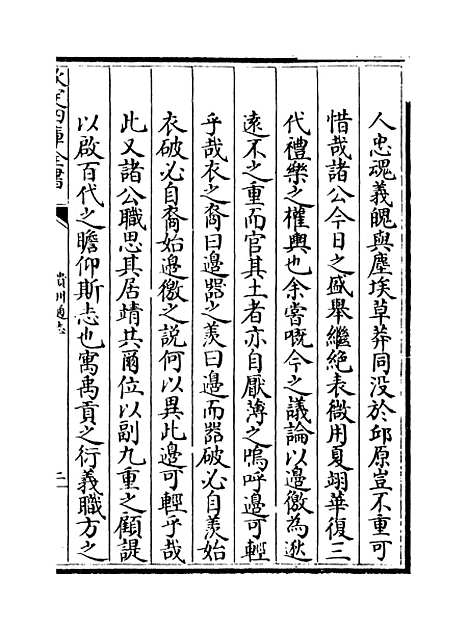 人忠魂義魄與塵埃草莽同没於邱原豈不重可
惜哉諸公今日之盛舉繼絶表微用夏翊華復三
代禮樂之權輿也余嘗嘅今之議論以邊徼為遐
遠不之重而官其土者亦自厭薄之嗚呼邊可輕
乎哉衣之裔曰邊器之羡曰邊而器破必自羡始
衣破必自裔始邊徼之説何以異此邊可輕乎哉
此又諸公職思其居靖共爾位以副九重之顧諟
以啟百代之瞻仰斯志也寓禹貢之衍義職方之
欽定四庫全書
貴州通志
二